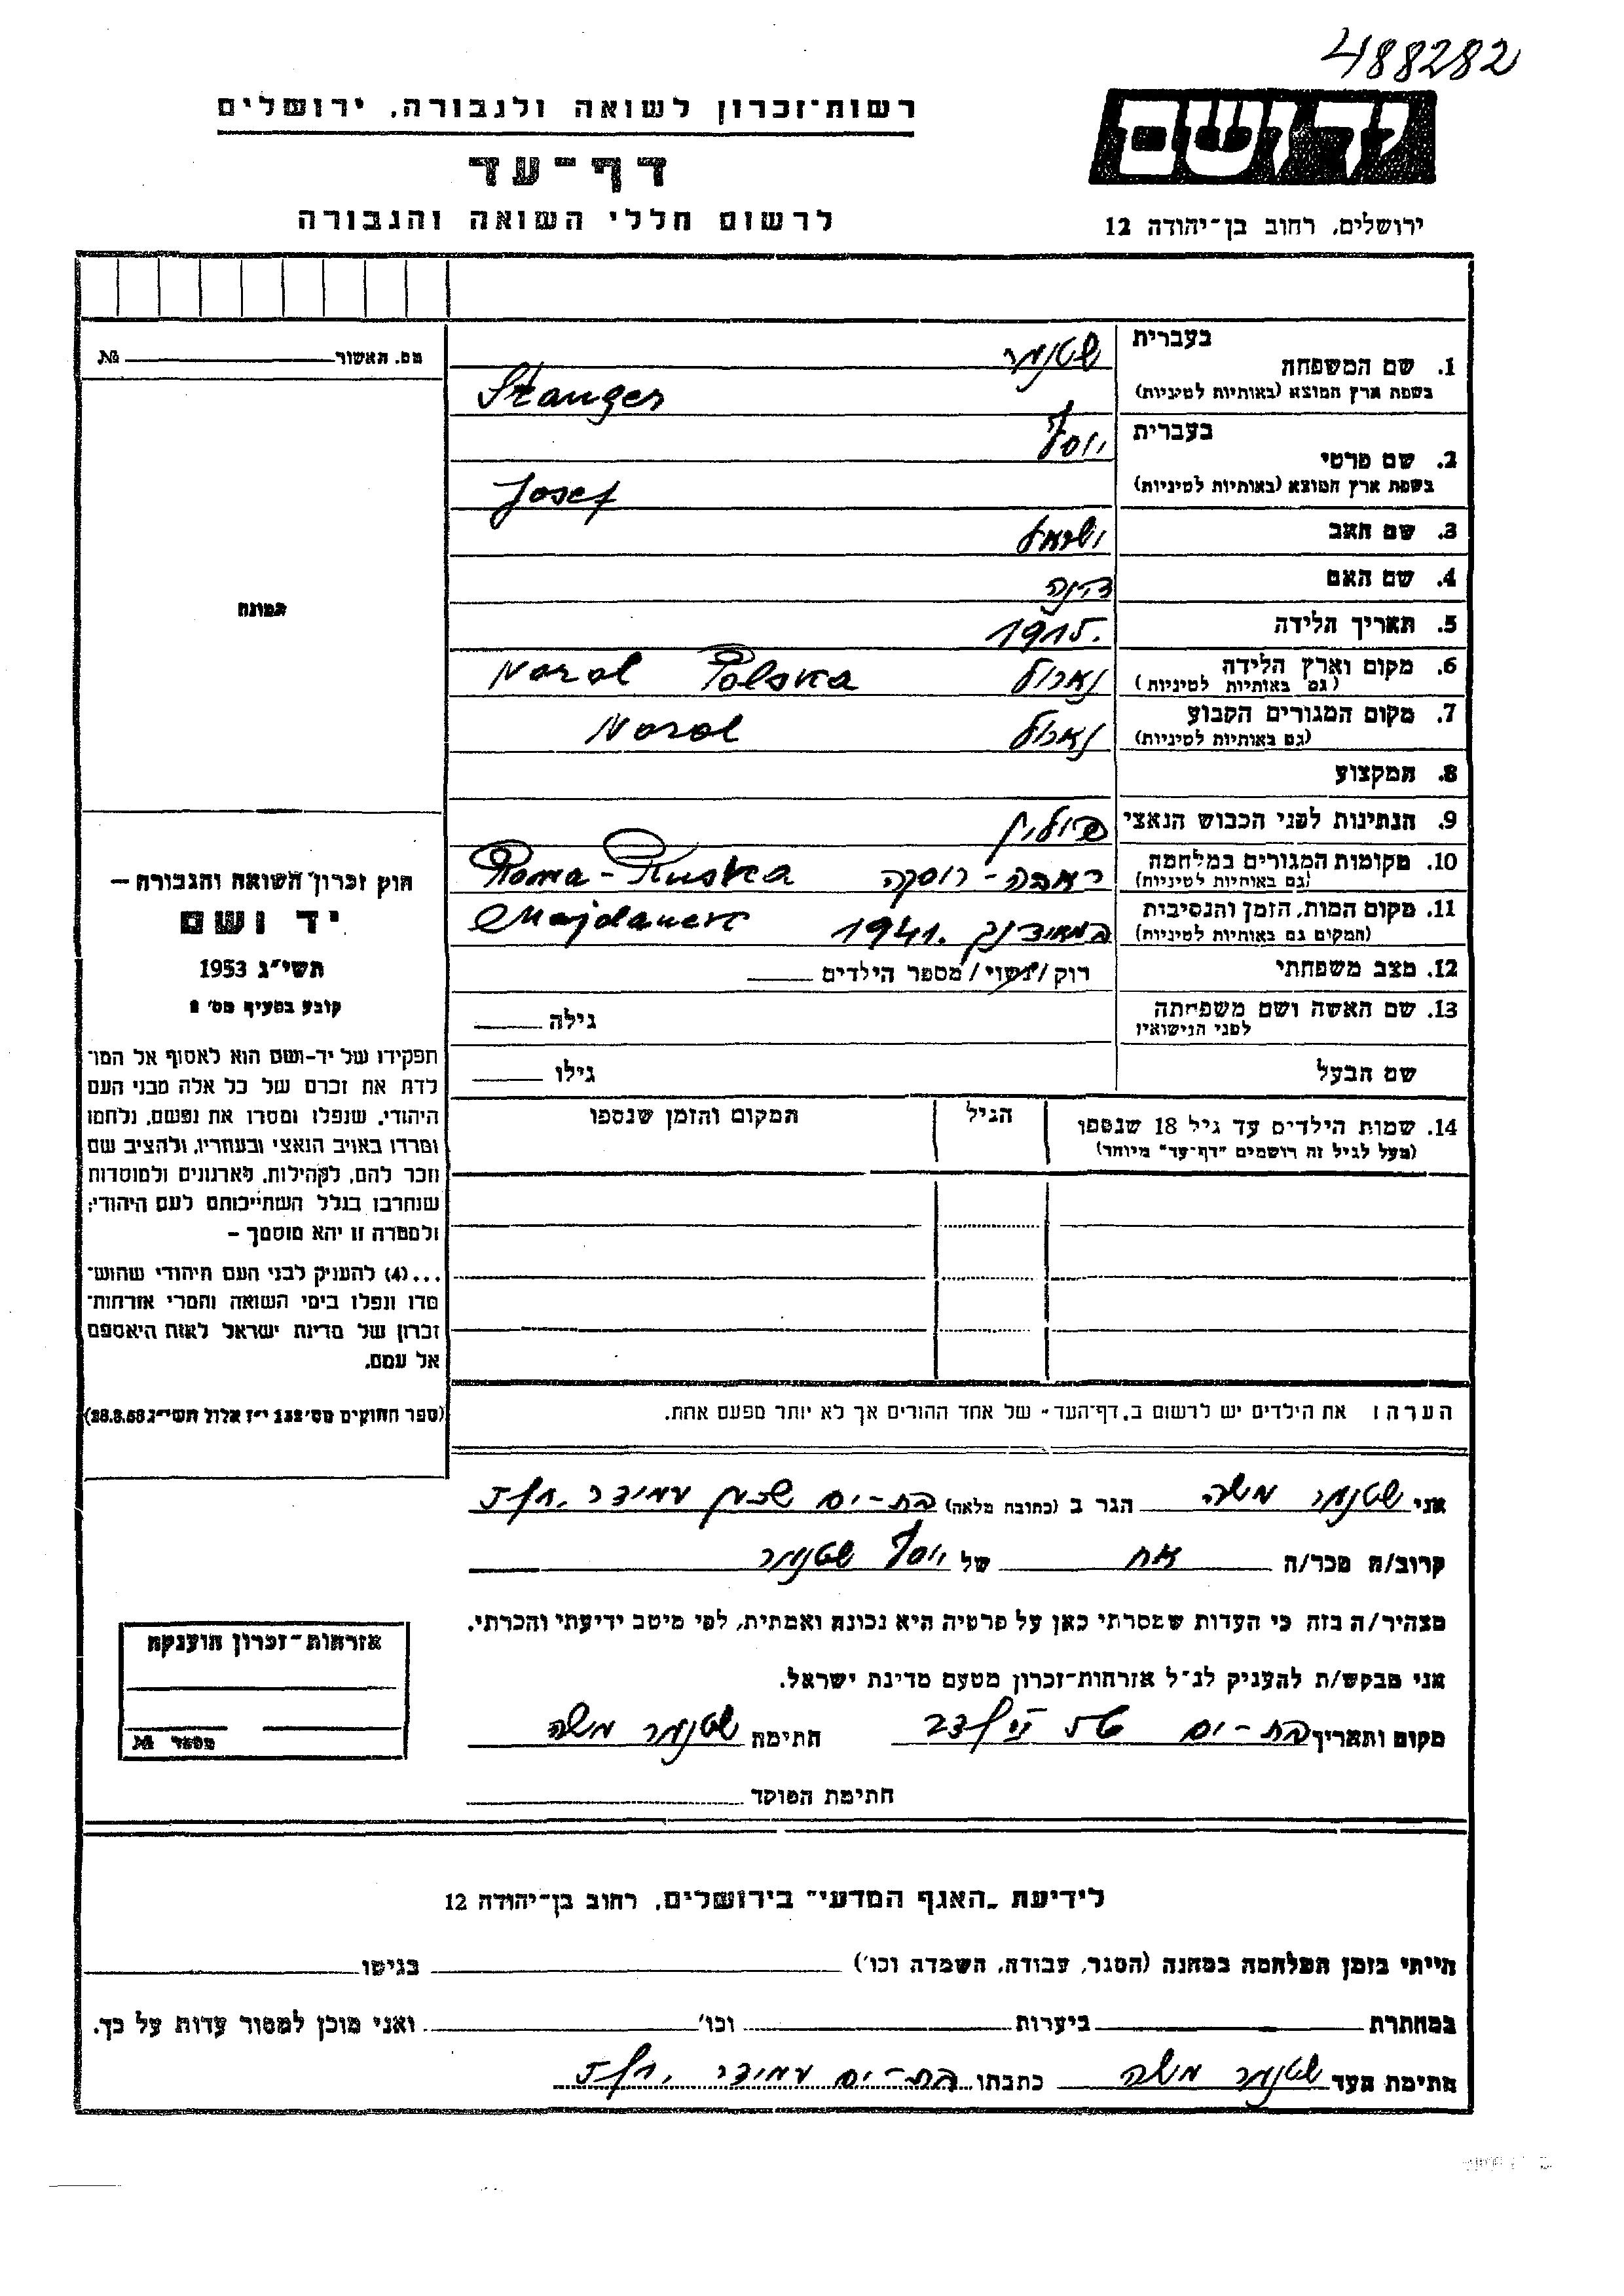 488282
יד ושם
ירושלים, רחוב בן-יהודה 12
רשות-זכרון לשואה ולגבורה, ירושלים
דף-עד
לרשום חללי השואה והגבורה
מס. האשור № 
תמונה
חוק זכרון השואה והגבורה –
יד ושם
תשי״ג 1953
קובע בסעיף מס׳ 2
תפקידו של יד-ושם הוא לאסוף אל המו־
לדת את זכרם של כל אלה מבני העם
היהודי, שנפלו ומסרו את נפשם, נלחמו
ומרדו באויב הנאצי ובעוזריו, ולהציב שם
וזכר להם, לקהילות, לארגונים ולמוסדות
שנחרבו בגלל השתייכותם לעם היהודי;
ולמטרה זו יהא מוסמך –
...(4) להעניק לבני העם היהודי שהוש־
מדו ונפלו בימי השואה והמרי אזרחות־
זכרון של מדינת ישראל לאות היאספם
אל עמם.
(ספר החוקים מס׳ 132 י״ז אלול תשי״ג 28.8.53)
בעברית שטנגר
1. שם המשפחה
בשפת ארץ המוצא (באותיות לטיניות) Stanger
בעברית יוסף
2. שם פרטי
בשפת ארץ המוצא (באותיות לטיניות) Josef
3. שם האב ישראל
4. שם האם דינה
5. תאריך הלידה 1915.
6. מקום וארץ הלידה נארול Narol Polska
(גם באותיות לטיניות)
7. מקום המגורים הקבוע נארול Narol
(גם באותיות לטיניות)
8. המקצוע
9. הנתינות לפני הכבוש הנאצי פולין
10. מקומות המגורים במלחמה ראבה-רוסקה Rawa-Ruska
(גם באותיות לטיניות)
11. מקום המות, הזמן והנסיבות במאידנק 1941. Majdanek
(המקום גם באותיות לטיניות)
12. מצב משפחתי רוק/נשוי/מספר הילדים
13. שם האשה ושם משפחתה גילה
לפני הנישואין
שם הבעל גילו
14. שמות הילדים עד גיל 18 שנספו הגיל המקום והזמן שנספו
(מעל לגיל זה רושמים "דף-עד" מיוחד)
הערה: את הילדים יש לרשום ב„דף-העד״ של אחד ההורים אך לא יותר מפעם אחת.
אני שטנגר משה הגר ב (כתובת מלאה) בת-ים שכון עמידר
קרוב/ה מכר/ה אח של יוסף שטנגר
מצהיר/ה בזה כי העדות שמסרתי כאן על פרטיה היא נכונה ואמתית, לפי מיטב ידיעתי והכרתי.
אני מבקש/ת להעניק לנ״ל אזרחות-זכרון מטעם מדינת ישראל.
מקום ותאריך בת-ים חתימת שטנגר משה
חתימת הפוקד
אזרחות-זכרון הוענקה
מספר №
לידיעת „האגף המדעי״ בירושלים, רחוב בן-יהודה 12
הייתי בזמן המלחמה במחנה (הסגר, עבודה, השמדה וכו׳) בגיטו
במחתרת ביערות וכו׳ ואני מוכן למסור עדות על כך.
חתימת העד שטנגר משה כתבתו בת-ים עמידר